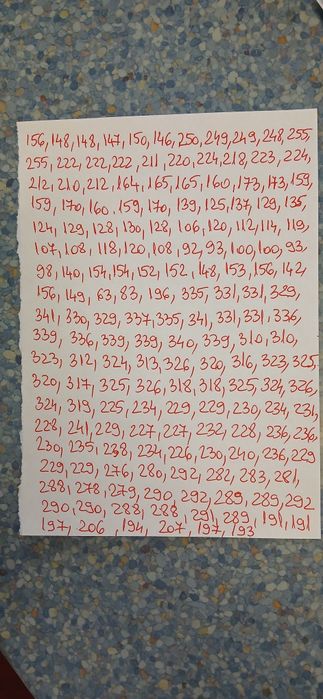 156, 148, 148, 147, 150, 146, 250, 249, 249, 248, 255
255, 222, 222, 222, 211, 220, 224, 218, 223, 224,
212, 210, 212, 164, 165, 165, 160, 173, 173, 159,
159, 170, 160, 159, 170, 139, 125, 137, 129, 135,
124, 129, 128, 130, 128, 106, 120, 112, 114, 119,
107, 108, 118, 120, 108, 92, 93, 100, 100, 93,
98, 140, 154, 154, 152, 152, 148, 153, 156, 142,
156, 149, 63, 83, 196, 335, 331, 331, 329,
341, 330, 329, 337, 335, 341, 331, 331, 336,
339, 336, 339, 339, 340, 339, 310, 310,
323, 312, 324, 313, 326, 320, 316, 323, 325
320, 317, 325, 326, 318, 318, 325, 324, 326,
324, 319, 225, 234, 229, 229, 230, 234, 231,
228, 241, 229, 227, 227, 232, 228, 236, 236,
230, 235, 238, 234, 226, 230, 240, 236, 229
229, 229, 276, 280, 292, 282, 283, 281,
288, 278, 279, 290, 292, 289, 289, 292
290, 290, 288, 288, 291, 289, 191, 191
197, 206, 194, 207, 197, 193